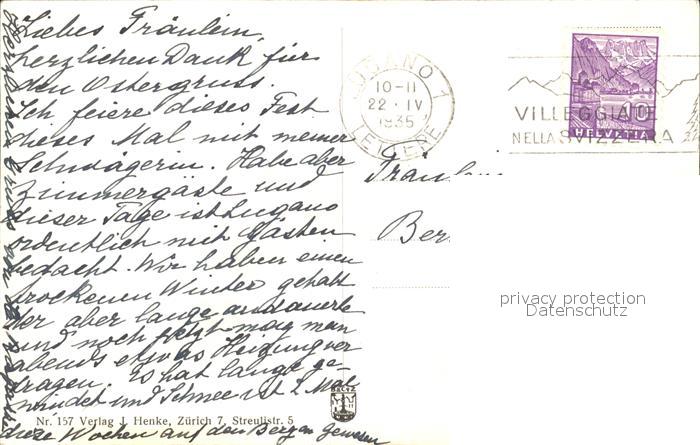 Liebes Fräulein,
herzlichen Dank für
den Ostergruss.
Ich feiere dieses Fest
dieses Mal mit meiner
Schwägerin. Habe aber
Zimmergäste und
dieser Tage ist Lugano
ordentlich mit Gästen
bedacht. Wir haben einen
trockenen Winter gehabt
der aber lange andauerte
und noch jetzt mag man
abends etwas Heizung ver
tragen. Es hat lange ge-
windet und Schnee ist 2 Mal
diese Wochen auf den Bergen gewesen
Nr. 157 Verlag J. Henke, Zürich 7, Streulistr. 5
LUGANO 1
10-11
22 · IV
1935
LETTERE
VILLEGGIATE
NELLA SVIZZERA
10
HELVETIA
Fräulein
Ber
privacy protection
Datenschutz